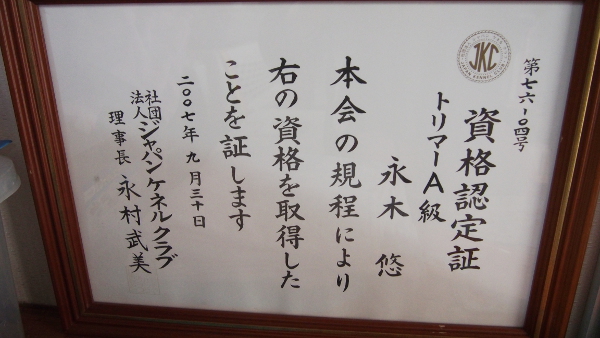 第七六-〇四号
JKC
JAPAN KENNEL CLUB
資格認定証
トリマーA級
永木 悠
本会の規程により
右の資格を取得した
ことを証します
二〇〇七年九月三十日
社団法人ジャパンケネルクラブ
理事長 永村武美